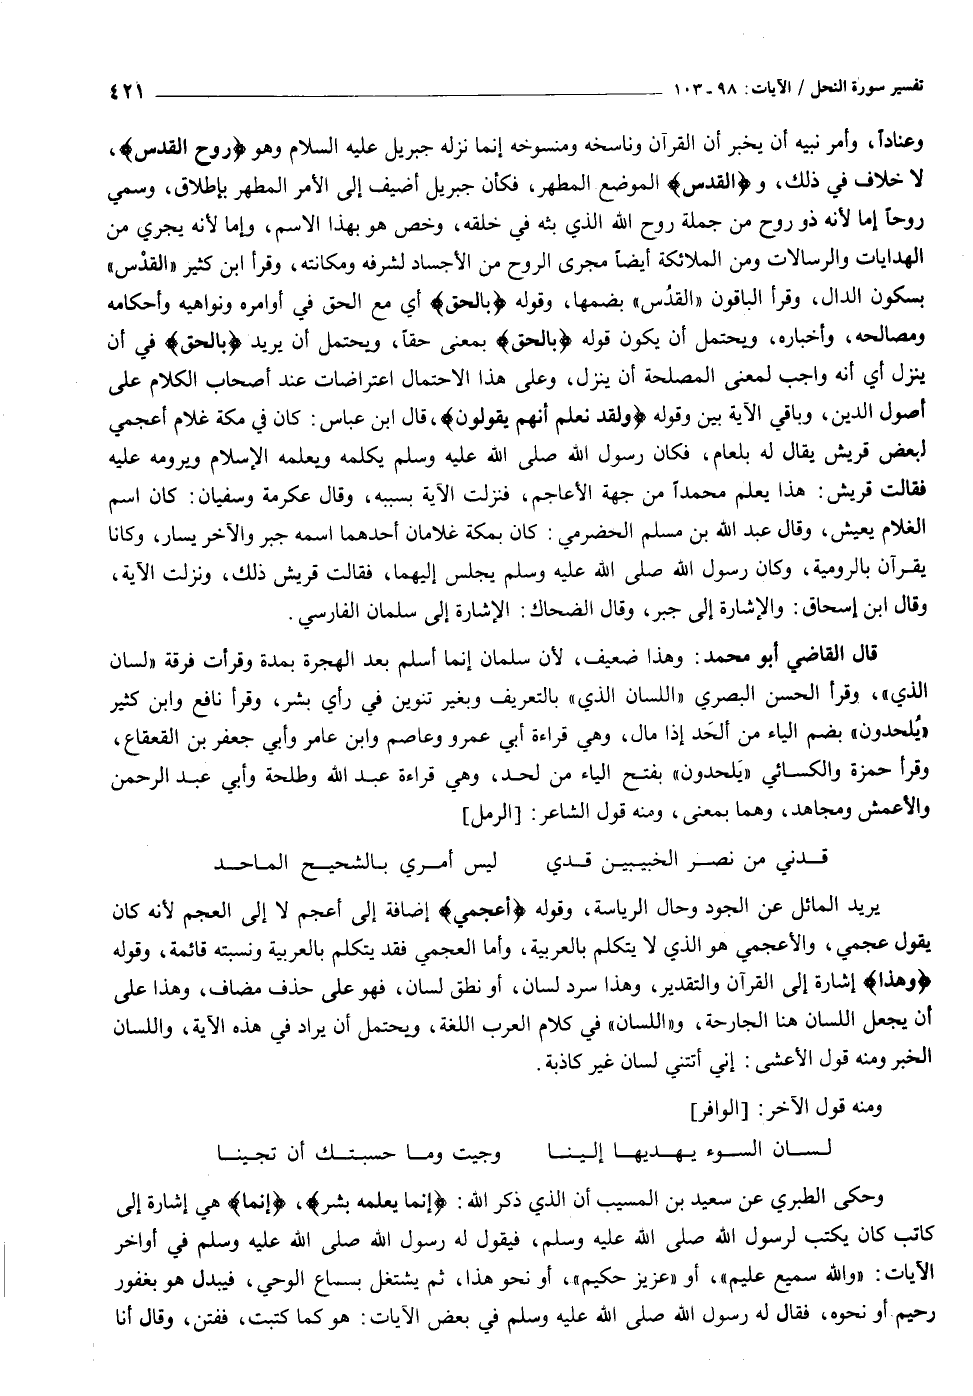 تفسير سورة النحل / الآيات: ٩٨ - ١٠٣ ٤٢١
وعناداً، وأمر نبيه أن يخبر أن القرآن وناسخه ومنسوخه إنما نزله جبريل عليه السلام وهو ﴿روح القدس﴾،
لا خلاف في ذلك، و ﴿القدس﴾ الموضع المطهر، فكأن جبريل أضيف إلى الأمر المطهر بإطلاق، وسمي
روحاً إما لأنه ذو روح من جملة روح الله الذي بثه في خلقه، وخص هو بهذا الاسم، وإما لأنه يجري من
الهدايات والرسالات ومن الملائكة أيضاً مجرى الروح من الأجساد لشرفه ومكانته، وقرأ ابن كثير «القدْس»
بسكون الدال، وقرأ الباقون «القدُس» بضمها، وقوله ﴿بالحق﴾ أي مع الحق في أوامره ونواهيه وأحكامه
ومصالحه، وأخباره، ويحتمل أن يكون قوله ﴿بالحق﴾ بمعنى حقاً، ويحتمل أن يريد ﴿بالحق﴾ في أن
ينزل أي أنه واجب لمعنى المصلحة أن ينزل، وعلى هذا الاحتمال اعتراضات عند أصحاب الكلام على
أصول الدين، وباقي الآية بين وقوله ﴿ولقد نعلم أنهم يقولون﴾، قال ابن عباس: كان في مكة غلام أعجمي
لبعض قريش يقال له بلعام، فكان رسول الله صلى الله عليه وسلم يكلمه ويعلمه الإسلام ويرومه عليه
فقالت قريش: هذا يعلم محمداً من جهة الأعاجم، فنزلت الآية بسببه، وقال عكرمة وسفيان: كان اسم
الغلام يعيش، وقال عبد الله بن مسلم الحضرمي: كان بمكة غلامان أحدهما اسمه جبر والآخر يسار، وكانا
يقرآن بالرومية، وكان رسول الله صلى الله عليه وسلم يجلس إليهما، فقالت قريش ذلك، ونزلت الآية،
وقال ابن إسحاق: والإشارة إلى جبر، وقال الضحاك: الإشارة إلى سلمان الفارسي.
قال القاضي أبو محمد: وهذا ضعيف، لأن سلمان إنما أسلم بعد الهجرة بمدة وقرأت فرقة «لسان
الذي»، وقرأ الحسن البصري «اللسان الذي» بالتعريف وبغير تنوين في رأي بشر، وقرأ نافع وابن كثير
«يُلحدون» بضم الياء من ألحَد إذا مال، وهي قراءة أبي عمرو وعاصم وابن عامر وأبي جعفر بن القعقاع،
وقرأ حمزة والكسائي «يَلحدون» بفتح الياء من لحد، وهي قراءة عبد الله وطلحة وأبي عبد الرحمن
والأعمش ومجاهد، وهما بمعنى، ومنه قول الشاعر: [الرمل]
قدني من نصر الخبيبين قدي ليس أمري بالشحيح الماحد
يريد المائل عن الجود وحال الرياسة، وقوله ﴿أعجمي﴾ إضافة إلى أعجم لا إلى العجم لأنه كان
يقول عجمي، والأعجمي هو الذي لا يتكلم بالعربية، وأما العجمي فقد يتكلم بالعربية ونسبته قائمة، وقوله
﴿وهذا﴾ إشارة إلى القرآن والتقدير، وهذا سرد لسان، أو نطق لسان، فهو على حذف مضاف، وهذا على
أن يجعل اللسان هنا الجارحة، و«اللسان» في كلام العرب اللغة، ويحتمل أن يراد في هذه الآية، واللسان
الخبر ومنه قول الأعشى: إني أتتني لسان غير كاذبة.
ومنه قول الآخر: [الوافر]
لسان السوء يهديها إلينا وجيت وما حسبتك أن تجينا
وحكى الطبري عن سعيد بن المسيب أن الذي ذكر الله: ﴿إنما يعلمه بشر﴾، ﴿إنما﴾ هي إشارة إلى
كاتب كان يكتب لرسول الله صلى الله عليه وسلم، فيقول له رسول الله صلى الله عليه وسلم في أواخر
الآيات: «والله سميع عليم»، أو «عزيز حكيم»، أو نحو هذا، ثم يشتغل بسماع الوحي، فيبدل هو بغفور
رحيم أو نحوه، فقال له رسول الله صلى الله عليه وسلم في بعض الآيات: هو كما كتبت، ففتن، وقال أنا